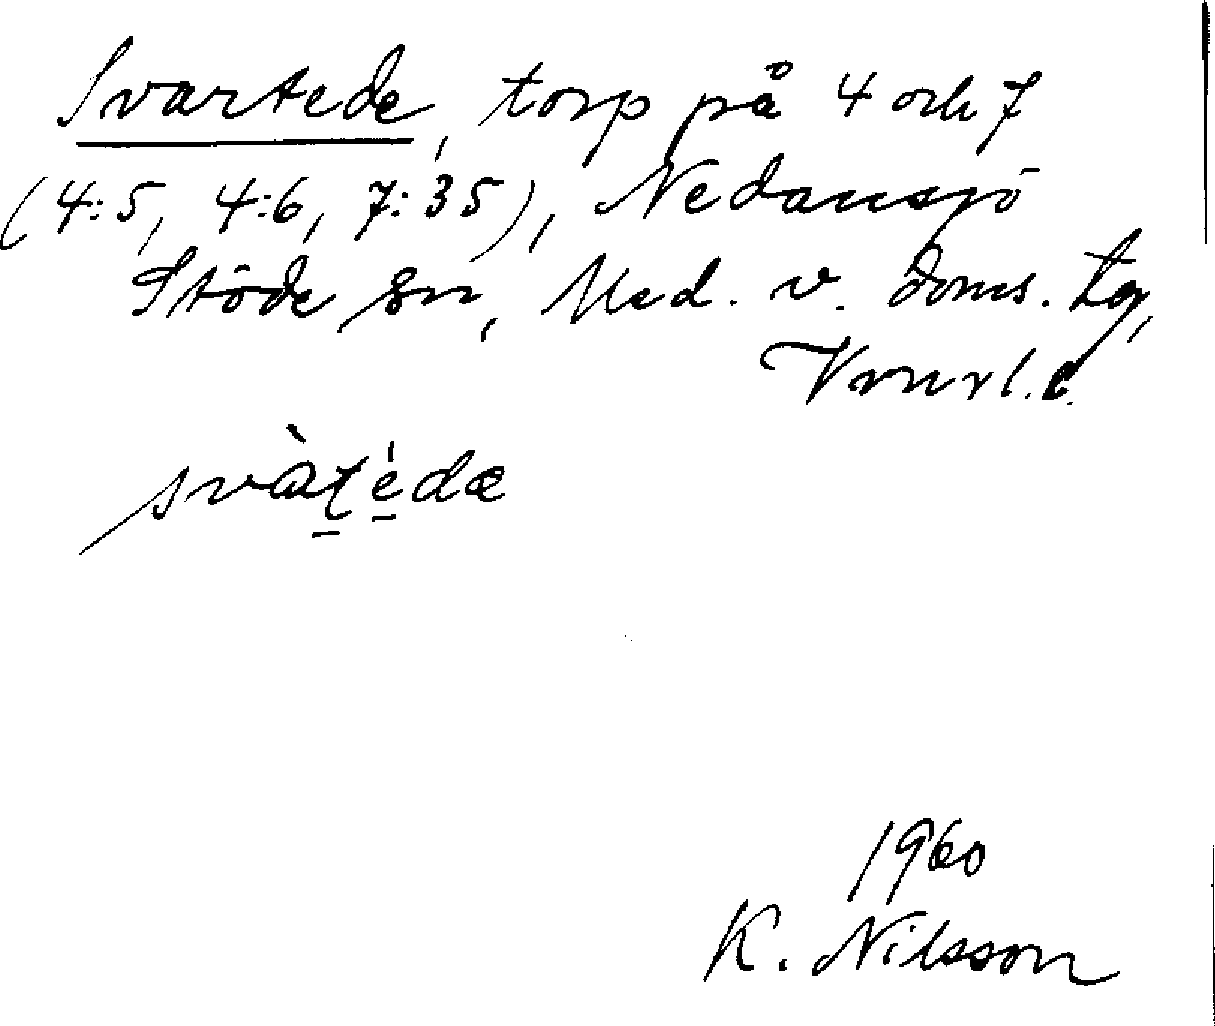 Svartede, torp på 4 och 7
(4:5, 4:6, 7:35), Nedansjö
Stöde sn, Med. v. doms. tg,
Vnrl.l.
svàt̠é̠dæ
1960
K. Nilsson